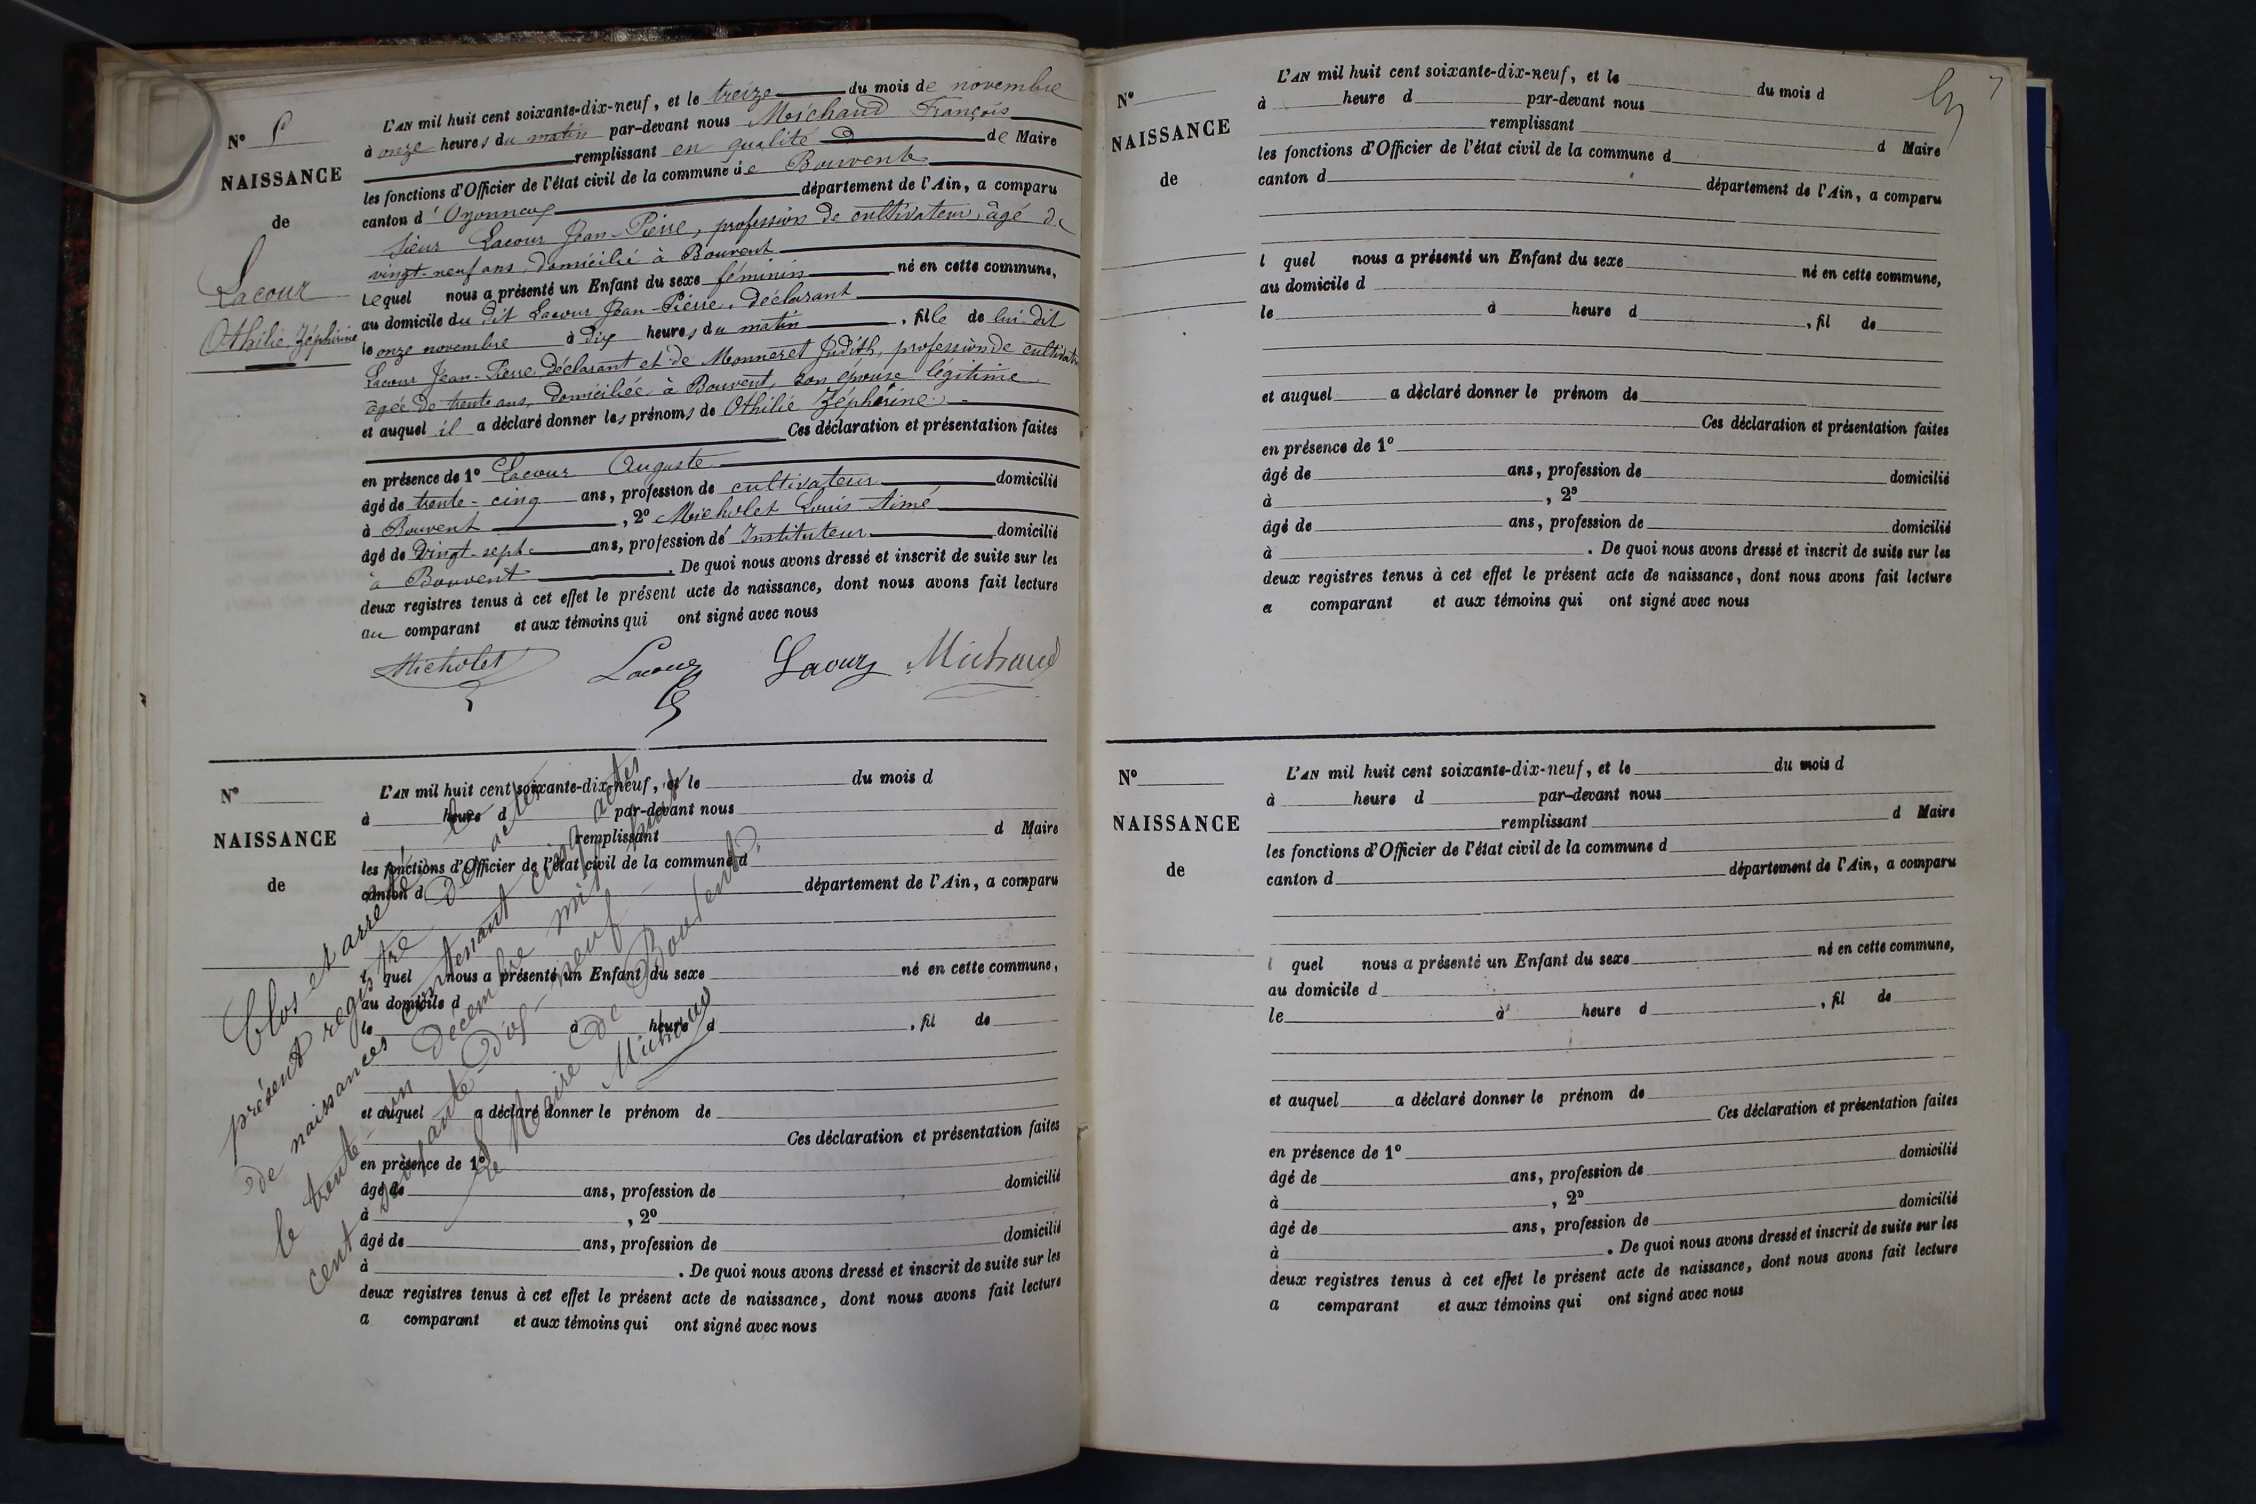 N° 5
NAISSANCE
de
Lacour
Othilie Zéphirine
L'AN mil huit cent soixante-dix-neuf, et le treize du mois de novembre
à onze heures du matin par-devant nous Michaud François
remplissant en qualité de Maire
les fonctions d'Officier de l'état civil de la commune de Bouvent
canton d'Oyonnax département de l'Ain, a comparu
sieur Lacour Jean-Pierre, profession de cultivateur, âgé de
vingt-neuf ans, domicilié à Bouvent
lequel nous a présenté un Enfant du sexe féminin né en cette commune,
au domicile du dit Lacour Jean-Pierre, déclarant
le onze novembre à dix heures du matin, fille de lui dit
Lacour Jean-Pierre, déclarant et de Monneret Judith, profession de cultivatrice
âgée de trente ans, domiciliée à Bouvent, son épouse légitime
et auquel il a déclaré donner les prénoms de Othilie Zéphirine.
Ces déclaration et présentation faites
en présence de 1° Lacour Auguste
âgé de trente-cinq ans, profession de cultivateur domicilié
à Bouvent, 2° Micholet Louis Aimé
âgé de vingt-sept ans, profession de Instituteur domicilié
à Bouvent. De quoi nous avons dressé et inscrit de suite sur les
deux registres tenus à cet effet le présent acte de naissance, dont nous avons fait lecture
au comparant et aux témoins qui ont signé avec nous
Micholet Lacour Lacour Michaud
N°
NAISSANCE
de
L'AN mil huit cent soixante-dix-neuf, et le du mois d
à heure d par-devant nous
remplissant d Maire
les fonctions d'Officier de l'état civil de la commune d
canton d département de l'Ain, a comparu
l quel nous a présenté un Enfant du sexe né en cette commune,
au domicile d
le à heure d , fil de
et auquel a déclaré donner le prénom de
Ces déclaration et présentation faites
en présence de 1°
âgé de ans, profession de domicilié
à , 2°
âgé de ans, profession de domicilié
à . De quoi nous avons dressé et inscrit de suite sur les
deux registres tenus à cet effet le présent acte de naissance, dont nous avons fait lecture
a comparant et aux témoins qui ont signé avec nous
Clos et arrêté le
présent registre de actes
de naissances contenant cinq actes
le trente-un décembre mil huit
cent soixante-dix-neuf
Le Maire de Bouvent,
Michaud
7
N°
NAISSANCE
de
L'AN mil huit cent soixante-dix-neuf, et le du mois d
à heure d par-devant nous
remplissant d Maire
les fonctions d'Officier de l'état civil de la commune d
canton d département de l'Ain, a comparu
l quel nous a présenté un Enfant du sexe né en cette commune,
au domicile d
le à heure d , fil de
et auquel a déclaré donner le prénom de
Ces déclaration et présentation faites
en présence de 1°
âgé de ans, profession de domicilié
à , 2°
âgé de ans, profession de domicilié
à . De quoi nous avons dressé et inscrit de suite sur les
deux registres tenus à cet effet le présent acte de naissance, dont nous avons fait lecture
a comparant et aux témoins qui ont signé avec nous
N°
NAISSANCE
de
L'AN mil huit cent soixante-dix-neuf, et le du mois d
à heure d par-devant nous
remplissant d Maire
les fonctions d'Officier de l'état civil de la commune d
canton d département de l'Ain, a comparu
l quel nous a présenté un Enfant du sexe né en cette commune,
au domicile d
le à heure d , fil de
et auquel a déclaré donner le prénom de
Ces déclaration et présentation faites
en présence de 1°
âgé de ans, profession de domicilié
à , 2°
âgé de ans, profession de domicilié
à . De quoi nous avons dressé et inscrit de suite sur les
deux registres tenus à cet effet le présent acte de naissance, dont nous avons fait lecture
a comparant et aux témoins qui ont signé avec nous